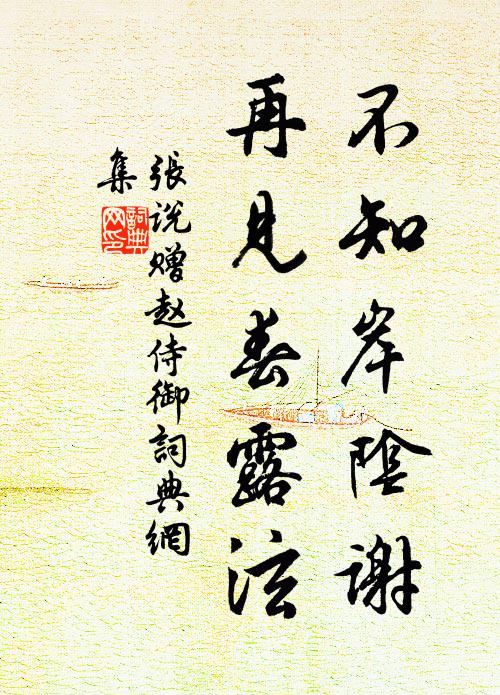 不知岸陰謝
再見春露泫
張说赠赵侍御詞典網
集
詞典网印